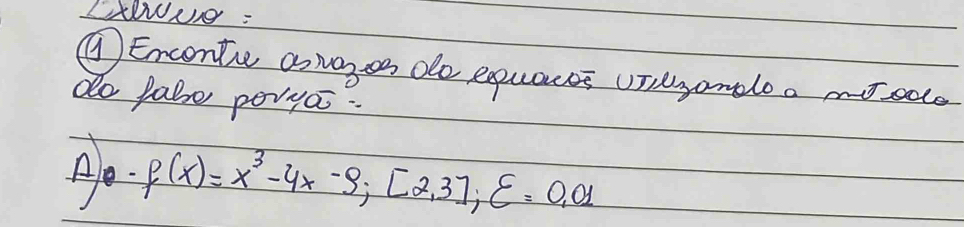 Exercício :
① Encontre as raízes da equação utilizando o método
da falsa posição :
A) - f(x) = x³ - 4x - 9; [2,3]; ε = 0,01